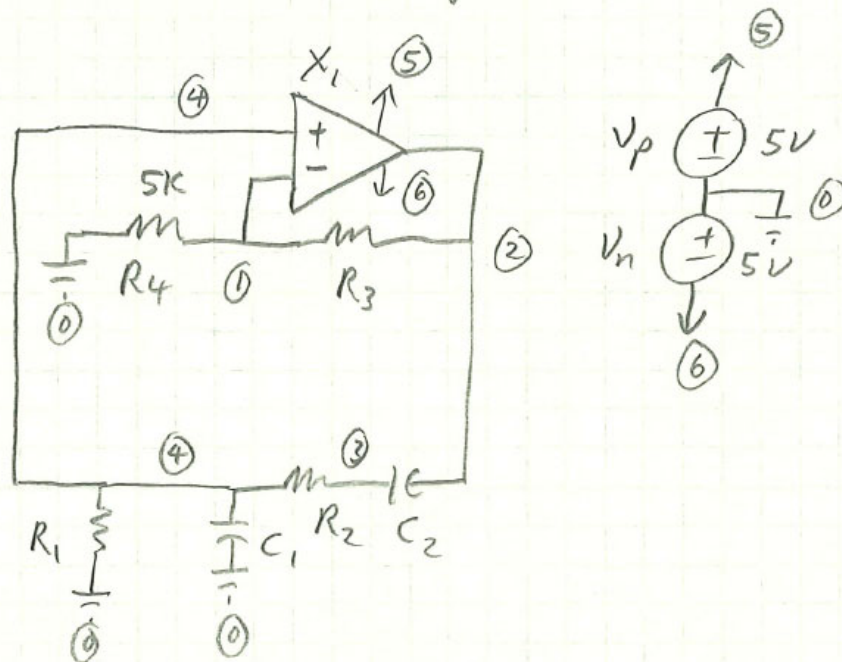 X₁ ⑤
④
+
5K
−
⑥
R₄ ① R₃ ②
⓪
④ ③
R₁ C₁ R₂ C₂
⓪ ⓪
⑤
Vp + − 5V
⓪
Vn + − 5V
⑥